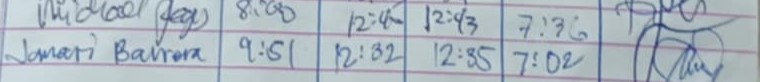 Michael 8:00 12:43 7:36
Jamari Barrera 9:51 12:32 12:35 7:02